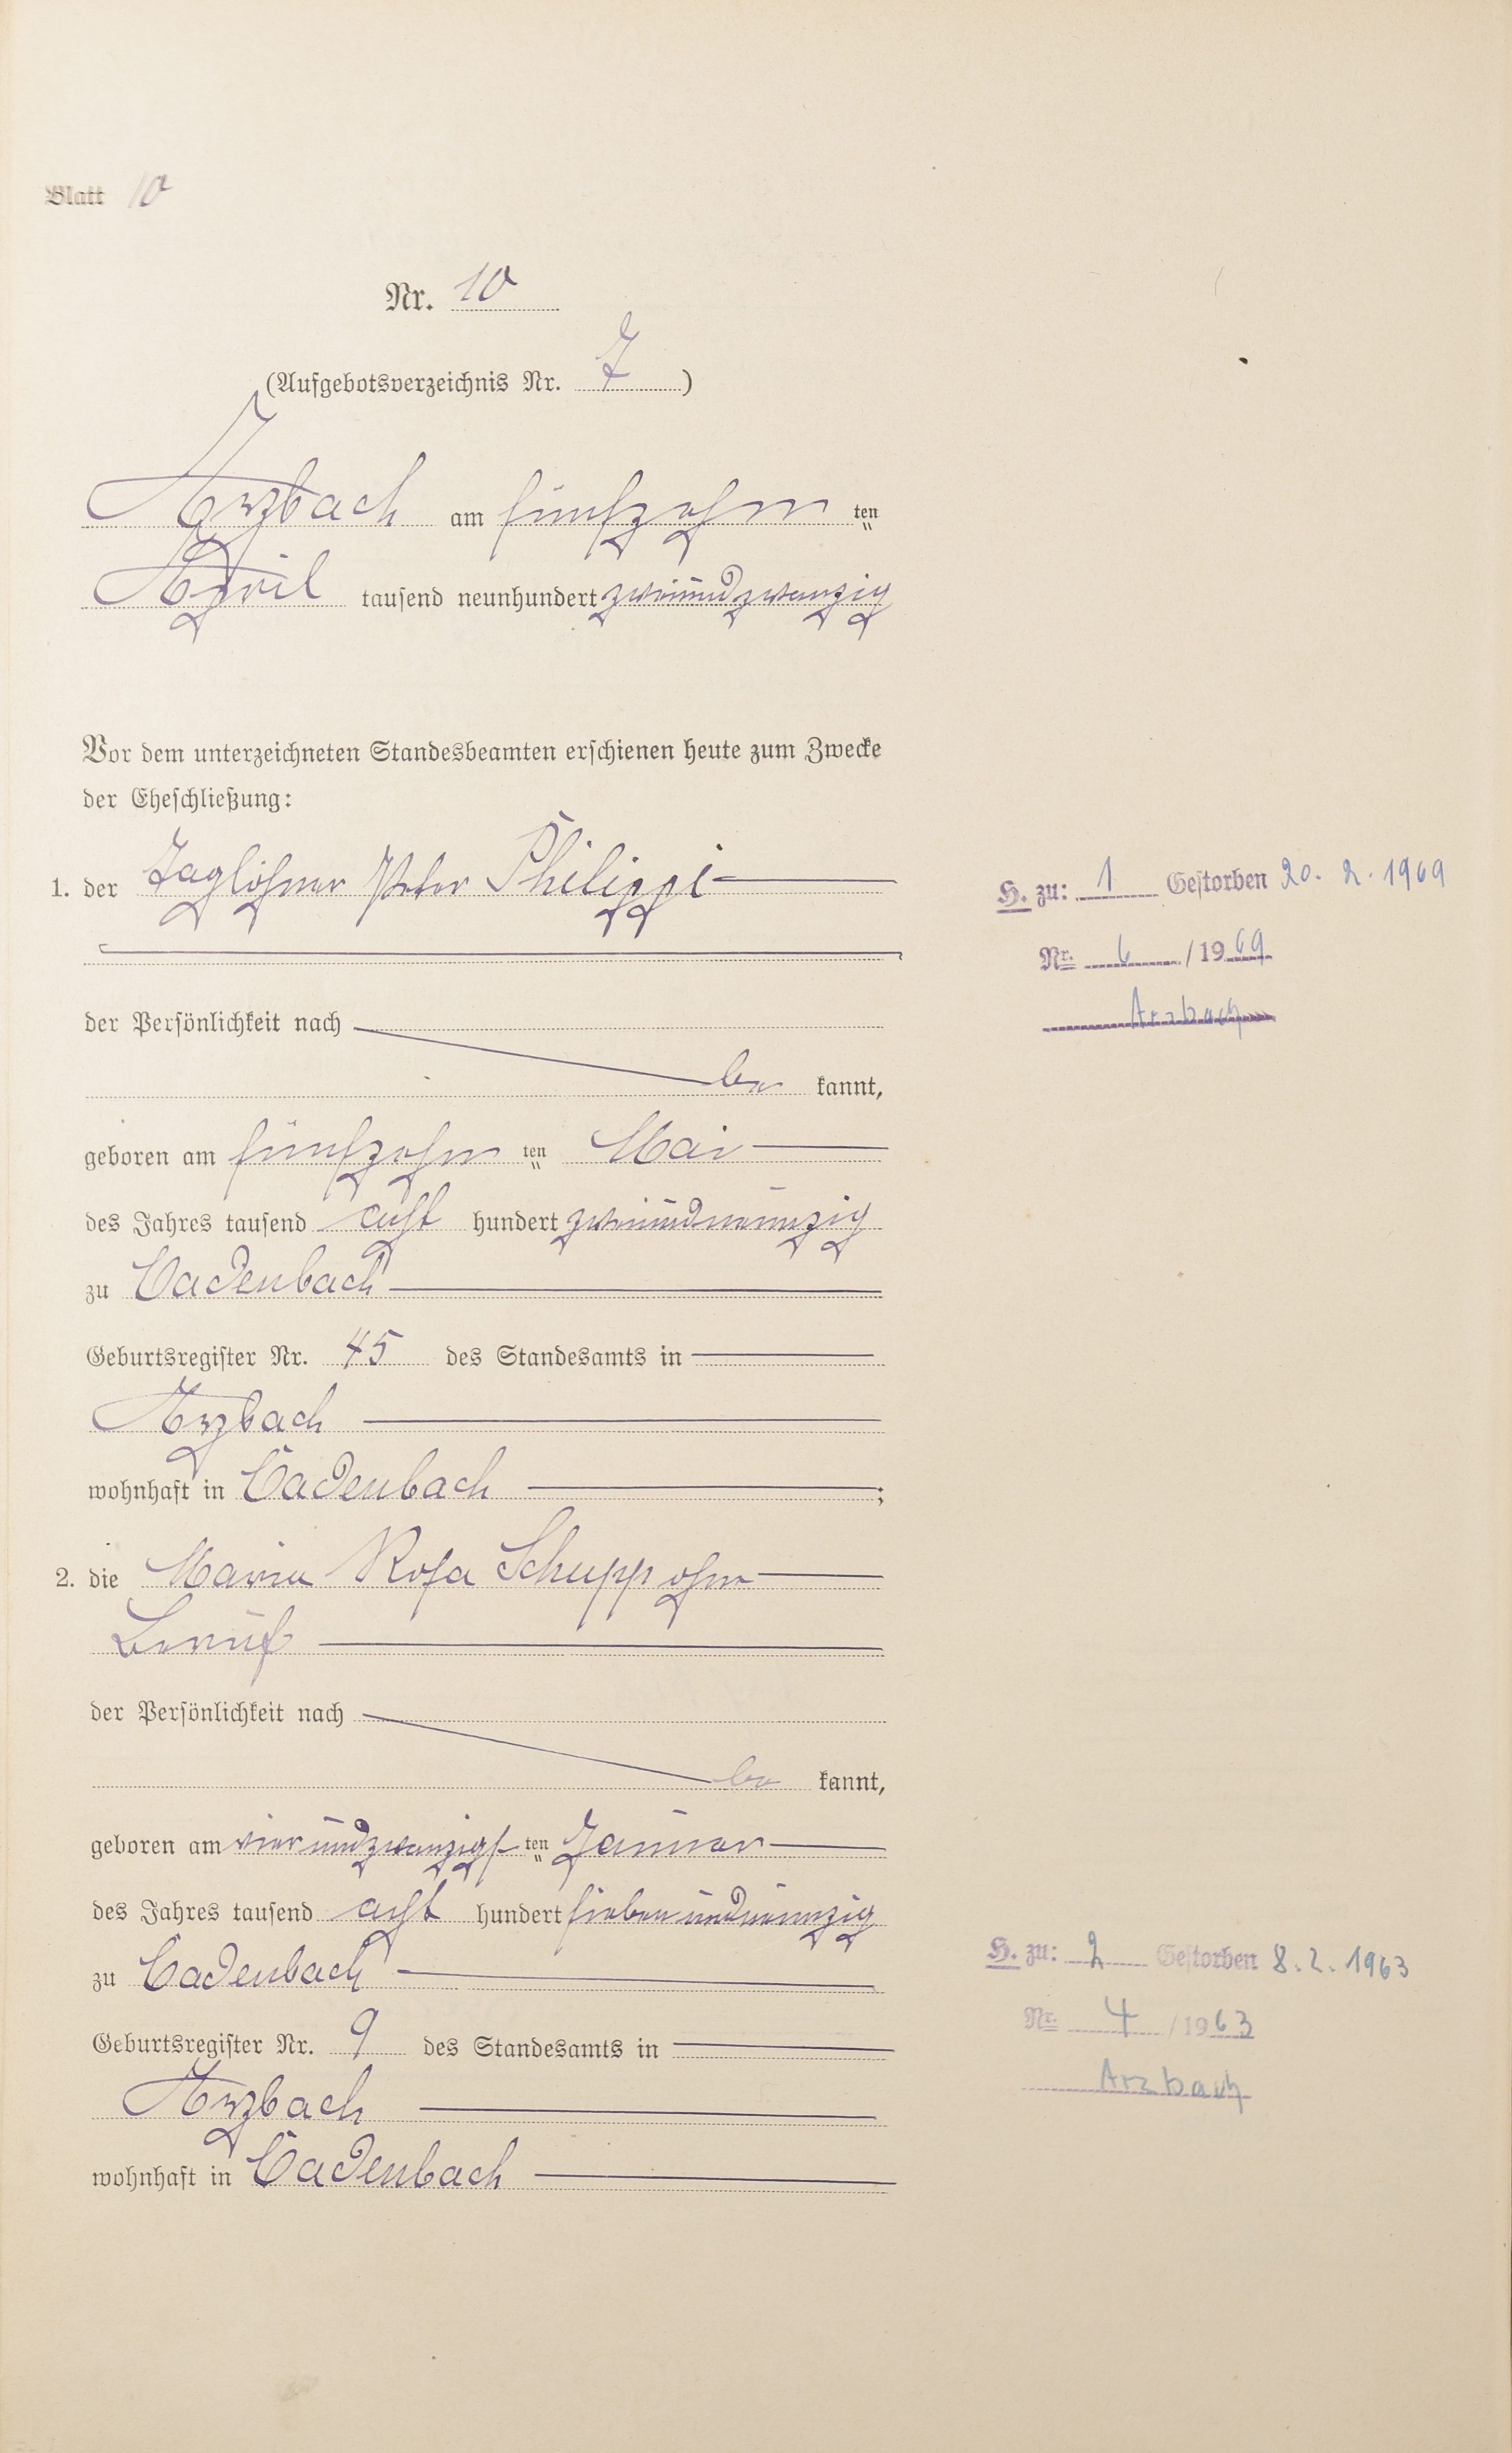 Blatt 10
Nr. 10
(Aufgebotsverzeichnis Nr. 7)
Arzbach am fünfzehn ten
April tausend neunhundert zweiundzwanzig
Vor dem unterzeichneten Standesbeamten erschienen heute zum Zwecke
der Eheschließung:
1. der Taglöhner Peter Philippi
H. zu: 1 Gestorben 20. 2. 1969
Nr. 6 / 1969
Arzbach
der Persönlichkeit nach
be kannt,
geboren am fünfzehn ten Mai
des Jahres tausend acht hundert zweiundneunzig
zu Cadenbach
Geburtsregister Nr. 45 des Standesamts in
Arzbach
wohnhaft in Cadenbach ;
2. die Maria Rosa Schupp ohne
Beruf
der Persönlichkeit nach
be kannt,
geboren am vierundzwanzigs ten Januar
des Jahres tausend acht hundert siebenundneunzig
zu Cadenbach
H. zu: 2 Gestorben 8. 2. 1963
Nr. 4 / 1963
Arzbach
Geburtsregister Nr. 9 des Standesamts in
Arzbach
wohnhaft in Cadenbach